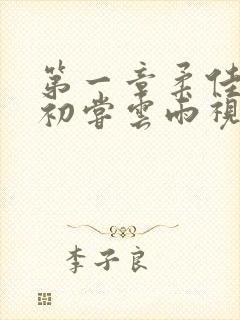 第一章柔佳
初尝雲雨視
李子良